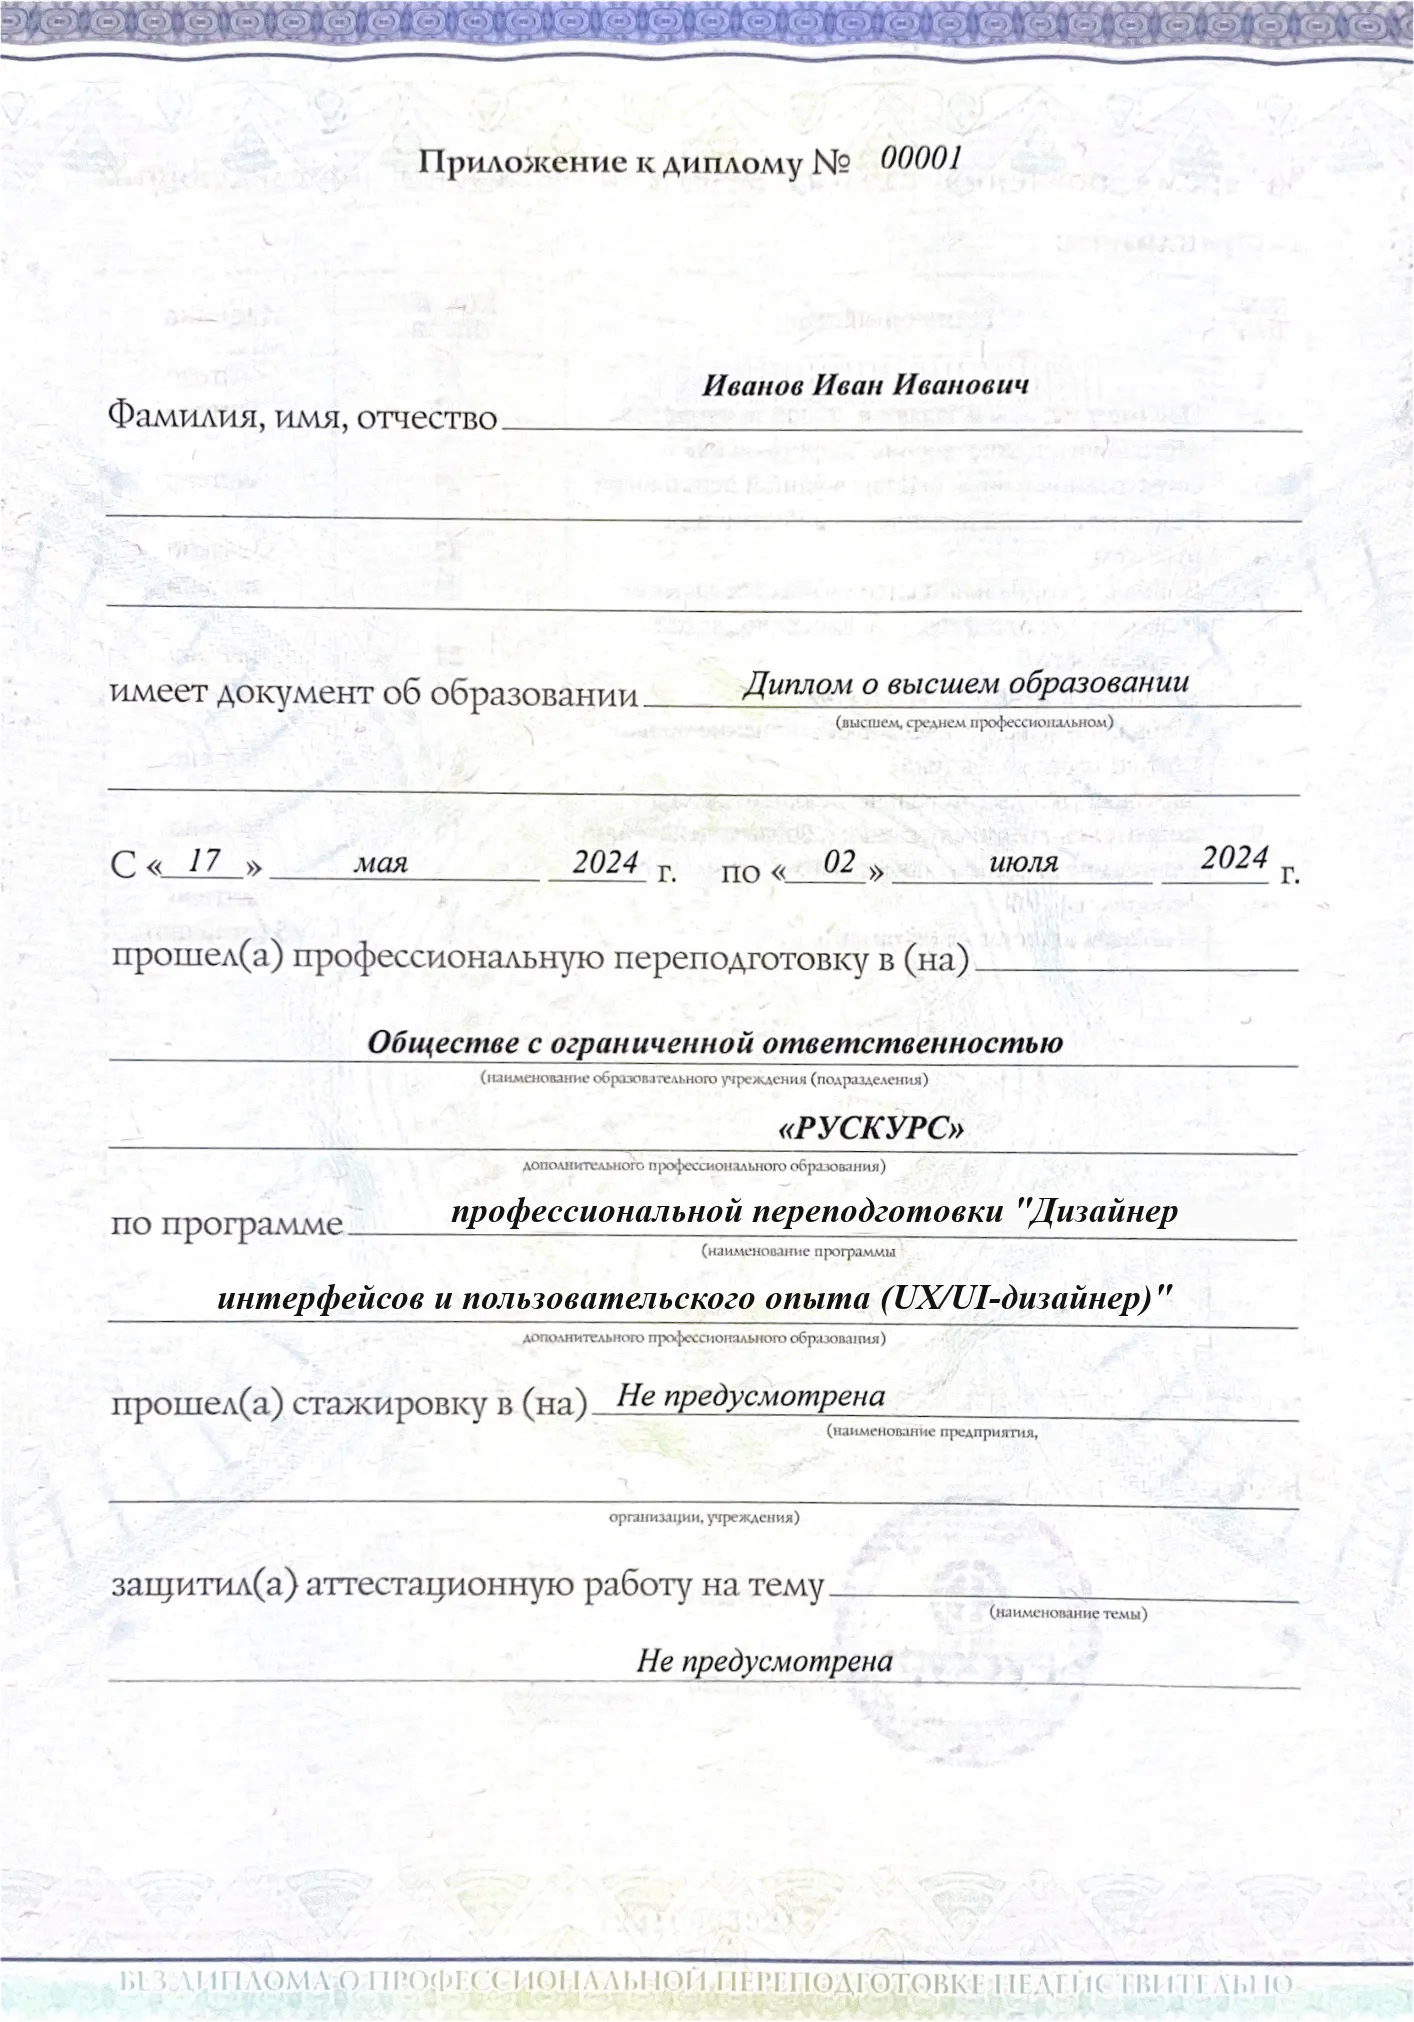 Приложение к диплому № 00001
Иванов Иван Иванович
Фамилия, имя, отчество
имеет документ об образовании Диплом о высшем образовании
(высшем, среднем профессиональном)
С « 17 » мая 2024 г. по « 02 » июля 2024 г.
прошел(а) профессиональную переподготовку в (на)
Обществе с ограниченной ответственностью
(наименование образовательного учреждения (подразделения)
«РУСКУРС»
дополнительного профессионального образования)
по программе профессиональной переподготовки "Дизайнер
(наименование программы
интерфейсов и пользовательского опыта (UX/UI-дизайнер)"
дополнительного профессионального образования)
прошел(а) стажировку в (на) Не предусмотрена
(наименование предприятия,
организации, учреждения)
защитил(а) аттестационную работу на тему
(наименование темы)
Не предусмотрена
БЕЗ ДИПЛОМА О ПРОФЕССИОНАЛЬНОЙ ПЕРЕПОДГОТОВКЕ НЕДЕЙСТВИТЕЛЬНО